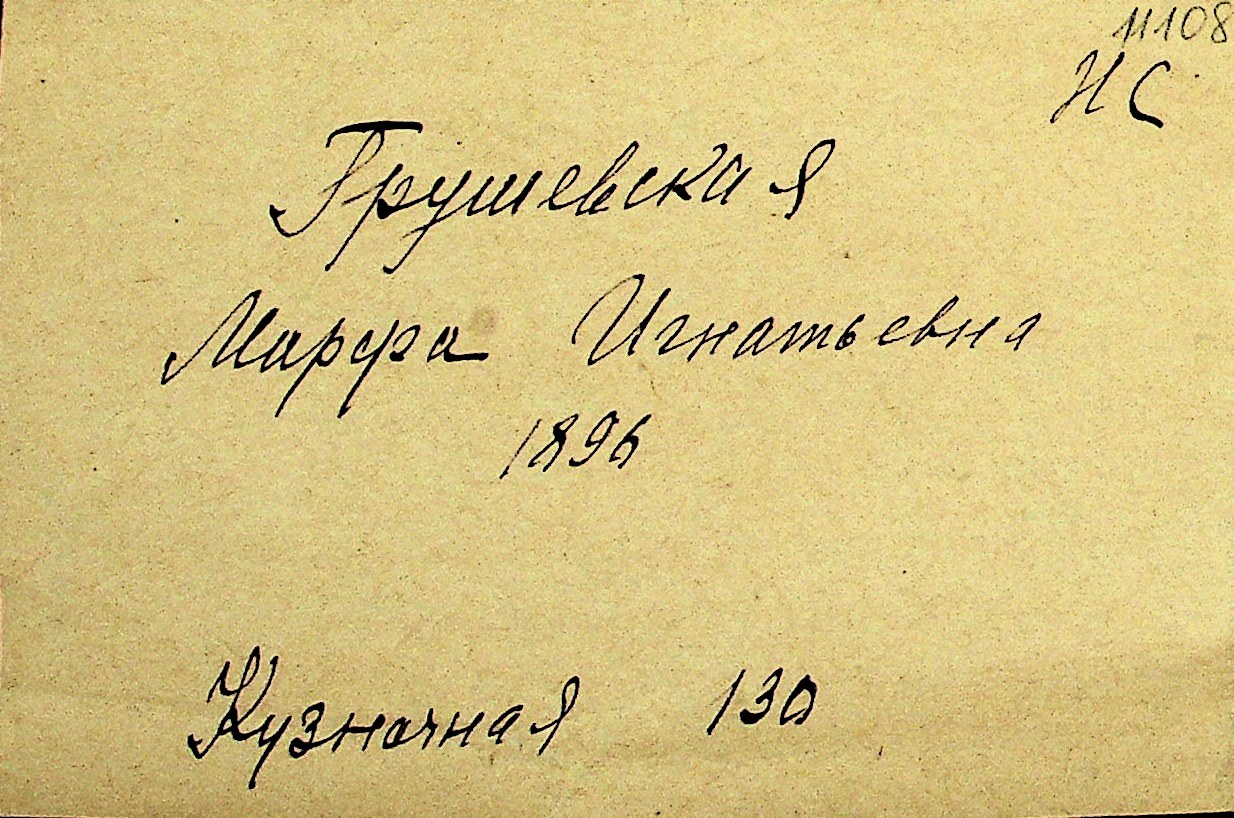 11108
НС
Грушевская
Марфа Игнатьевна
1896
Кузночная 130